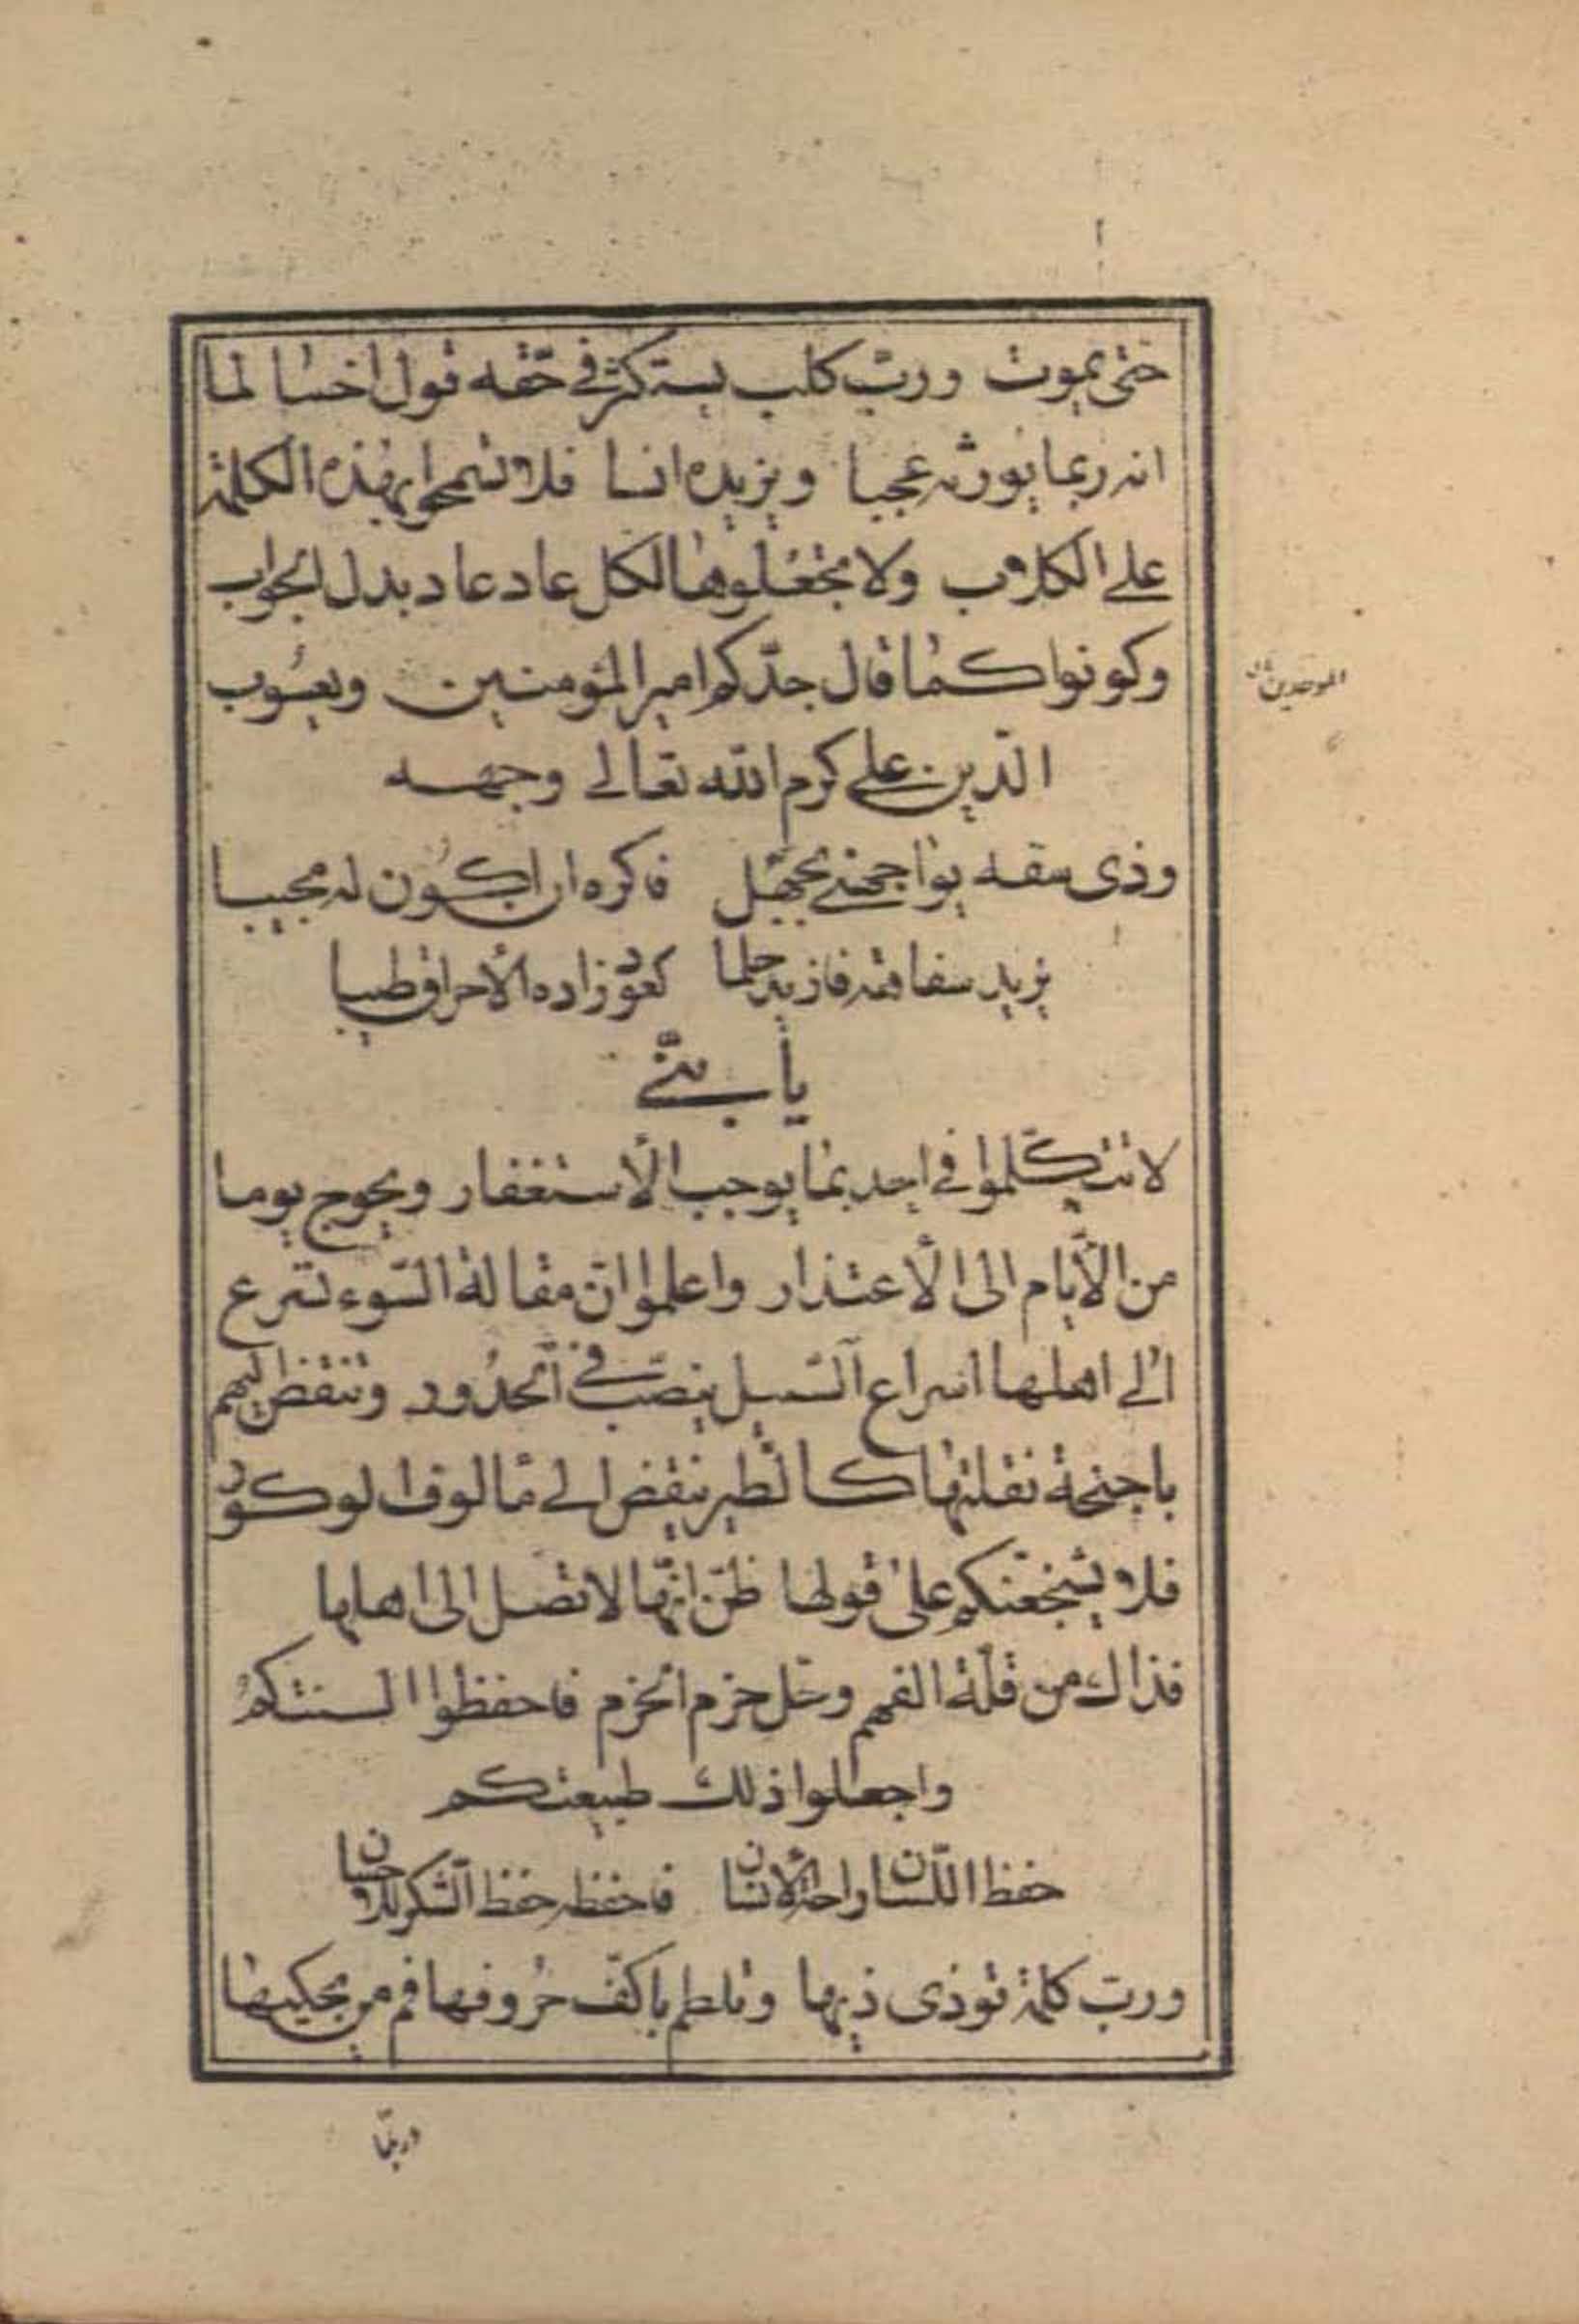 حتى يموت وربّ كلب يستكثر في حقّه قول اخسا لما
انه ربما يورثه عجبا ويزيده انسا فلا تسمحوا بهذه الكلمة
على الكلاب ولا تجعلوها لكل عاد عاد بدل الجواب
وكونوا كما قال جدّكم امير المؤمنين ويعسُوب
الموحدين
الدّين علي كرم الله تعالى وجهه
وذى سفه يواجهني بجهل فاكره ان اكون له مجيبا
يزيد سفاهة فازيد حلما كعود زاده الأحراق طيبا
يا بنيّ
لا تتكلّموا في احد بما يوجب الأستغفار ويحوج يوما
من الأيام الى الأعتذار واعلموا انّ مقالة السّوء تسرع
الى اهلها اسراع السّيل ينصبّ في الحدُور وتنقض اليهم
باجنحة نقلتها كالطير ينقض الى مألوف الوكور
فلا يشجعنّكم على قولها ظنّ انّها لا تصل الى اهلها
فذاك من قلّة الفهم وحَل حزم الحزم فاحفظوا السنتكم
واجعلوا ذلك طبيعتكم
حفظ اللّسان راحة الأنسان فاحفظه حفظ الشكر للاحسان
وربّ كلمة تؤذى ذيها وتلطم باكفّ حروفها فم من يحكيها
وربّما